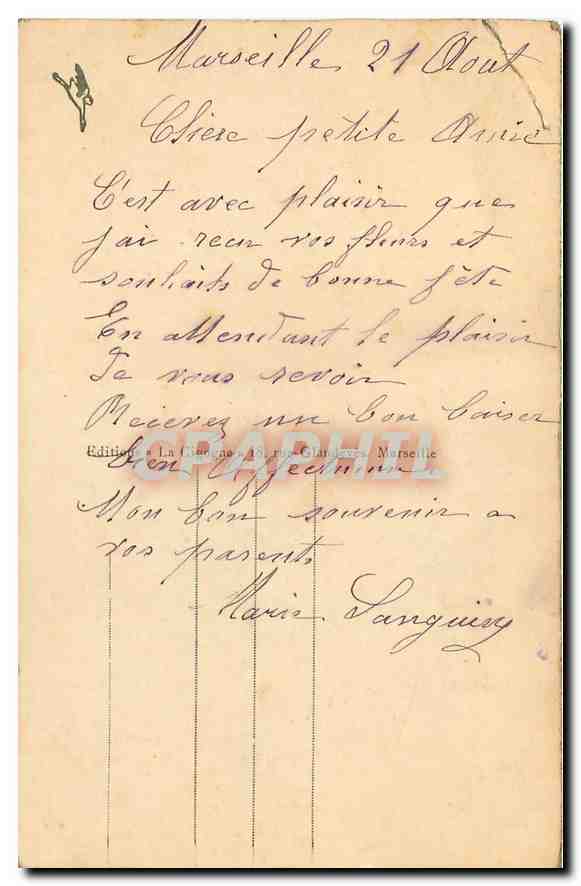 Marseille 21 Aout
Chère petite Amie
C'est avec plaisir que
j'ai recu vos fleurs et
souhaits de bonne fête
En attendant le plaisir
de vous revoir
Recevez un bon baiser
Editions « La Cigogne » 18, rue Glandevès, Marseille
bien
CRAPHIL
Mon bon souvenir a
vos parents
Marie